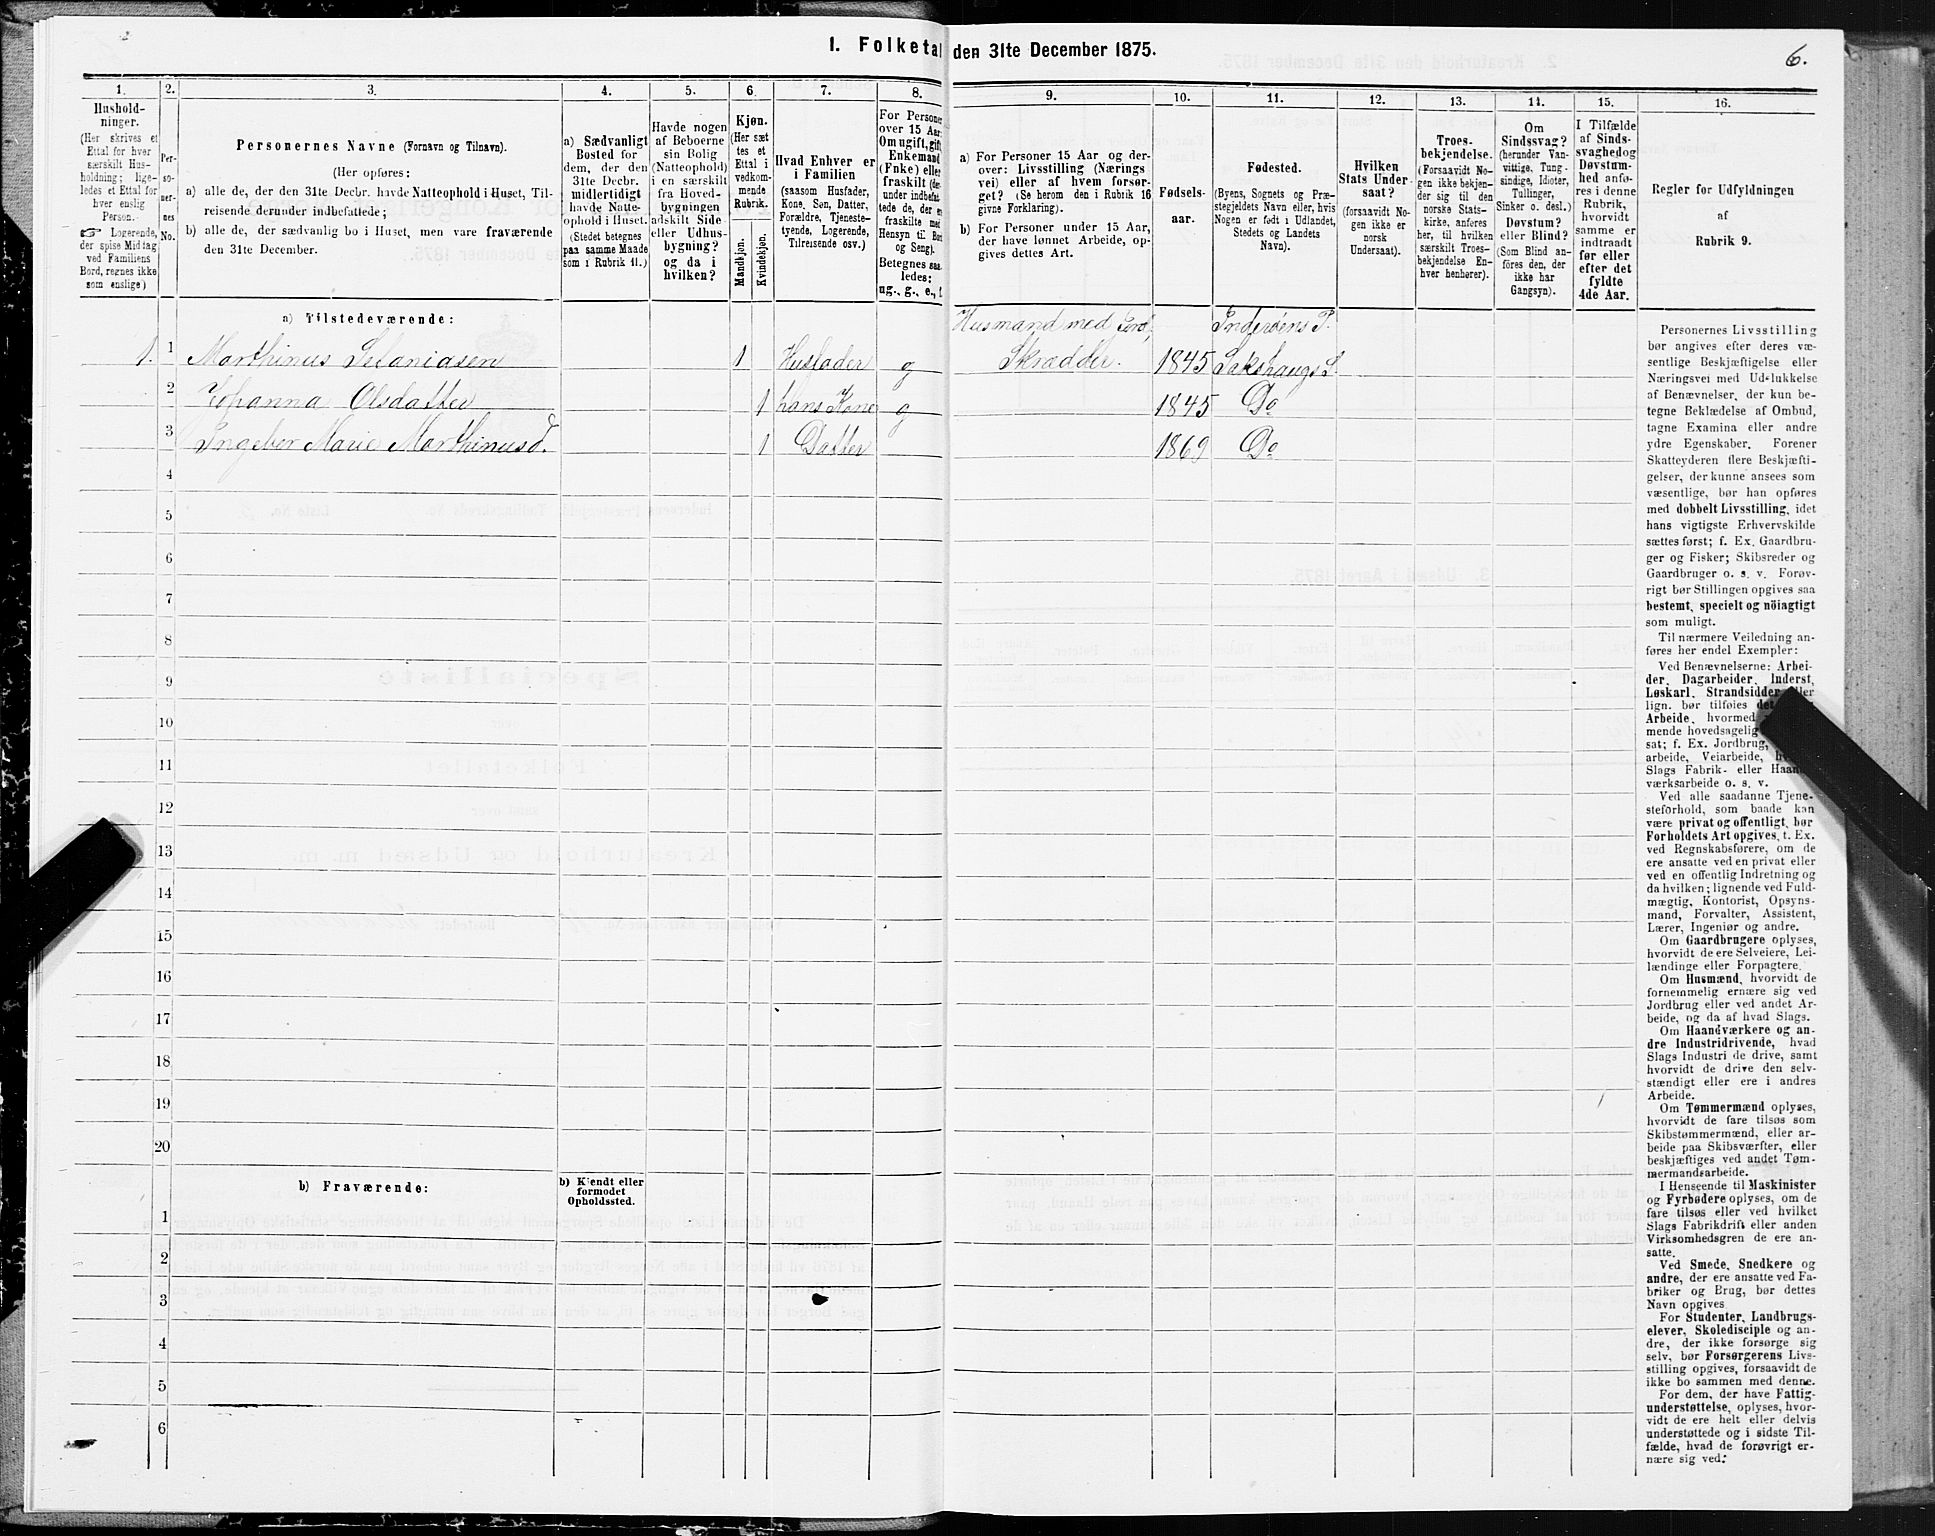 1. Folketal den 31te December 1875.
6.
1.
Hushold-
ninger.
(Her skrives et
Ettal for hver
særskilt Hus-
holdning; lige-
ledes et Ettal for
hver enslig
Person.
☞ Logerende,
der spise Middag
ved Familiens
Bord, regnes ikke
som enslige)
2.
Per-
so-
ner-
nes
No.
3.
Personernes Navne (Fornavn og Tilnavn).
(Her opføres:
a) alle de, der den 31te Decbr. havde Natteophold i Huset, Til-
reisende derunder indbefattede;
b) alle de, der sædvanlig bo i Huset, men vare fraværende
den 31te December.
4.
a) Sædvanligt
Bosted for
dem, der den
31te Decbr.
midlertidigt
havde Natte-
ophold i Huset.
(Stedet betegnes
paa samme Maade
som i Rubrik 11.)
5.
Havde nogen
af Beboerne
sin Bolig
(Natteophold)
i en særskilt
fra Hoved-
bygningen
adskilt Side-
eller Udhus-
bygning?
og da i
hvilken?
6.
Kjøn.
(Her sæt-
tes et
Ettal i
vedkom-
mende
Rubrik.
Mandkjøn.
Kvindekjøn.
7.
Hvad Enhver er
i Familien
(saasom Husfader,
Kone, Søn, Datter,
Forældre, Tjeneste-
tyende, Logerende,
Tilreisende osv.)
8.
For Personer
over 15 Aar:
Om ugift, gift,
Enkemand
(Enke) eller
fraskilt (der-
under indbefat-
tede de, der er
fraskilte med
Hensyn til Bord
og Seng).
Betegnes saa-
ledes:
ug., g., e., f.
9.
a) For Personer 15 Aar og der-
over: Livsstilling (Nærings-
vei) eller af hvem forsør-
get? (Se herom den i Rubrik 16
givne Forklaring).
b) For Personer under 15 Aar,
der have lønnet Arbeide, op-
gives dettes Art.
10.
Fødsels-
aar.
11.
Fødested.
(Byens, Sognets og Præ-
stegjeldets Navn eller, hvis
Nogen er født i Udlandet,
Stedets og Landets
Navn).
12.
Hvilken
Stats Under-
saat?
(forsaavidt No-
gen ikke er
norsk
Undersaat).
13.
Troes-
bekjendelse.
(Forsaavidt No-
gen ikke bekjen-
der sig til den
norske Stats-
kirke, anføres
her, til hvilken
særskilt Troes-
bekjendelse En-
hver henhører).
14.
Om
Sindssvag?
(herunder Van-
vittige, Tung-
sindige, Idioter,
Tullinger,
Sinker o. desl.)
Døvstum?
eller Blind?
(Som Blind an-
føres den, der
ikke har
Gangsyn).
15.
I Tilfælde
af Sinds-
svaghed og
Døvstum-
hed anfø-
res i denne
Rubrik,
hvorvidt
samme er
indtraadt
før eller
efter det
fyldte
4de Aar.
16.
Regler for Udfyldningen
af
Rubrik 9.
a) Tilstedeværende:
Husmand med Jord, Inderøens P.
1. 1 Marthinus Stefaniasen 1 Husfader g Skrædder. 1845 Sakshaugs S.
2 Johanna Olsdatter 1 hans Kone g 1845 Do
3 Ingeber Marie Marthinusd. 1 Datter 1869 Do
4
5
6
7
8
9
10
11
12
13
14
15
16
17
18
19
20
b) Fraværende:
b) Kjendt eller
formodet
Opholdssted.
1
2
3
4
5
6
Personernes Livsstilling
bør angives efter deres væ-
sentlige Beskjæftigelse eller
Næringsvei med Udelukkelse
af Benævnelser, der kun be-
tegne Beklædelse af Ombud,
tagne Examina eller andre
ydre Egenskaber. Forener
Skatteyderen flere Beskjæfti-
gelser, der kunne ansees som
væsentlige, bør han opføres
med dobbelt Livsstilling, idet
hans vigtigste Erhvervskilde
sættes først; f. Ex. Gaardbru-
ger og Fisker; Skibsreder og
Gaardbruger o. s. v. Forøv-
rigt bør Stillingen opgives saa
bestemt, specielt og nöiagtigt
som muligt.
Til nærmere Veiledning an-
føres her endel Exempler:
Ved Benævnelserne: Arbei-
der, Dagarbeider, Inderst,
Løskarl, Strandsidder eller
lign. bør tilføies det
Arbeide, hvormed
mende hovedsagelig
sat; f. Ex. Jordbrug,
arbeide, Veiarbeide,
Slags Fabrik- eller Haand-
værksarbeide o. s. v.
Ved alle saadanne Tjene-
steforhold, som baade kan
være privat og offentligt, bør
Forholdets Art opgives, t. Ex.
ved Regnskabsførere, om de
ere ansatte ved en privat eller
ved en offentlig Indretning og
da hvilken; lignende ved Fuld-
mægtig, Kontorist, Opsyns-
mand, Forvalter, Assistent,
Lærer, Ingeniør og andre.
Om Gaardbrugere oplyses,
hvorvidt de ere Selveiere, Lei-
lændinge eller Forpagtere.
Om Husmænd, hvorvidt de
fornemmelig ernære sig ved
Jordbrug eller ved andet Ar-
beide, og da af hvad Slags.
Om Haandværkere og an-
dre Industridrivende, hvad
Slags Industri de drive, samt
hvorvidt de drive den selv-
stændigt eller ere i andres
Arbeide.
Om Tømmermænd oplyses,
hvorvidt de fare tilsøs som
Skibstømmermænd, eller ar-
beide paa Skibsværfter, eller
beskjæftiges ved andet Tøm-
mermandsarbeide.
I Henseende til Maskinister
og Fyrbødere oplyses, om de
fare tilsøs eller ved hvilket
Slags Fabrikdrift eller anden
Virksomhedsgren de ere an-
satte.
Ved Smede, Snedkere og
andre, der ere ansatte ved Fa-
briker og Brug, bør dettes
Navn opgives
For Studenter, Landbrugs-
elever, Skoledisciple og an-
dre, der ikke forsørge sig
selv, bør Forsørgerens Livs-
stilling opgives, forsaavidt de
ikke bo sammen med denne.
For dem, der have Fattig-
understøttelse, oplyses, hvor-
vidt de ere helt eller delvis
understøttede og i sidste Til-
fælde, hvad de forøvrigt er-
nære sig ved.